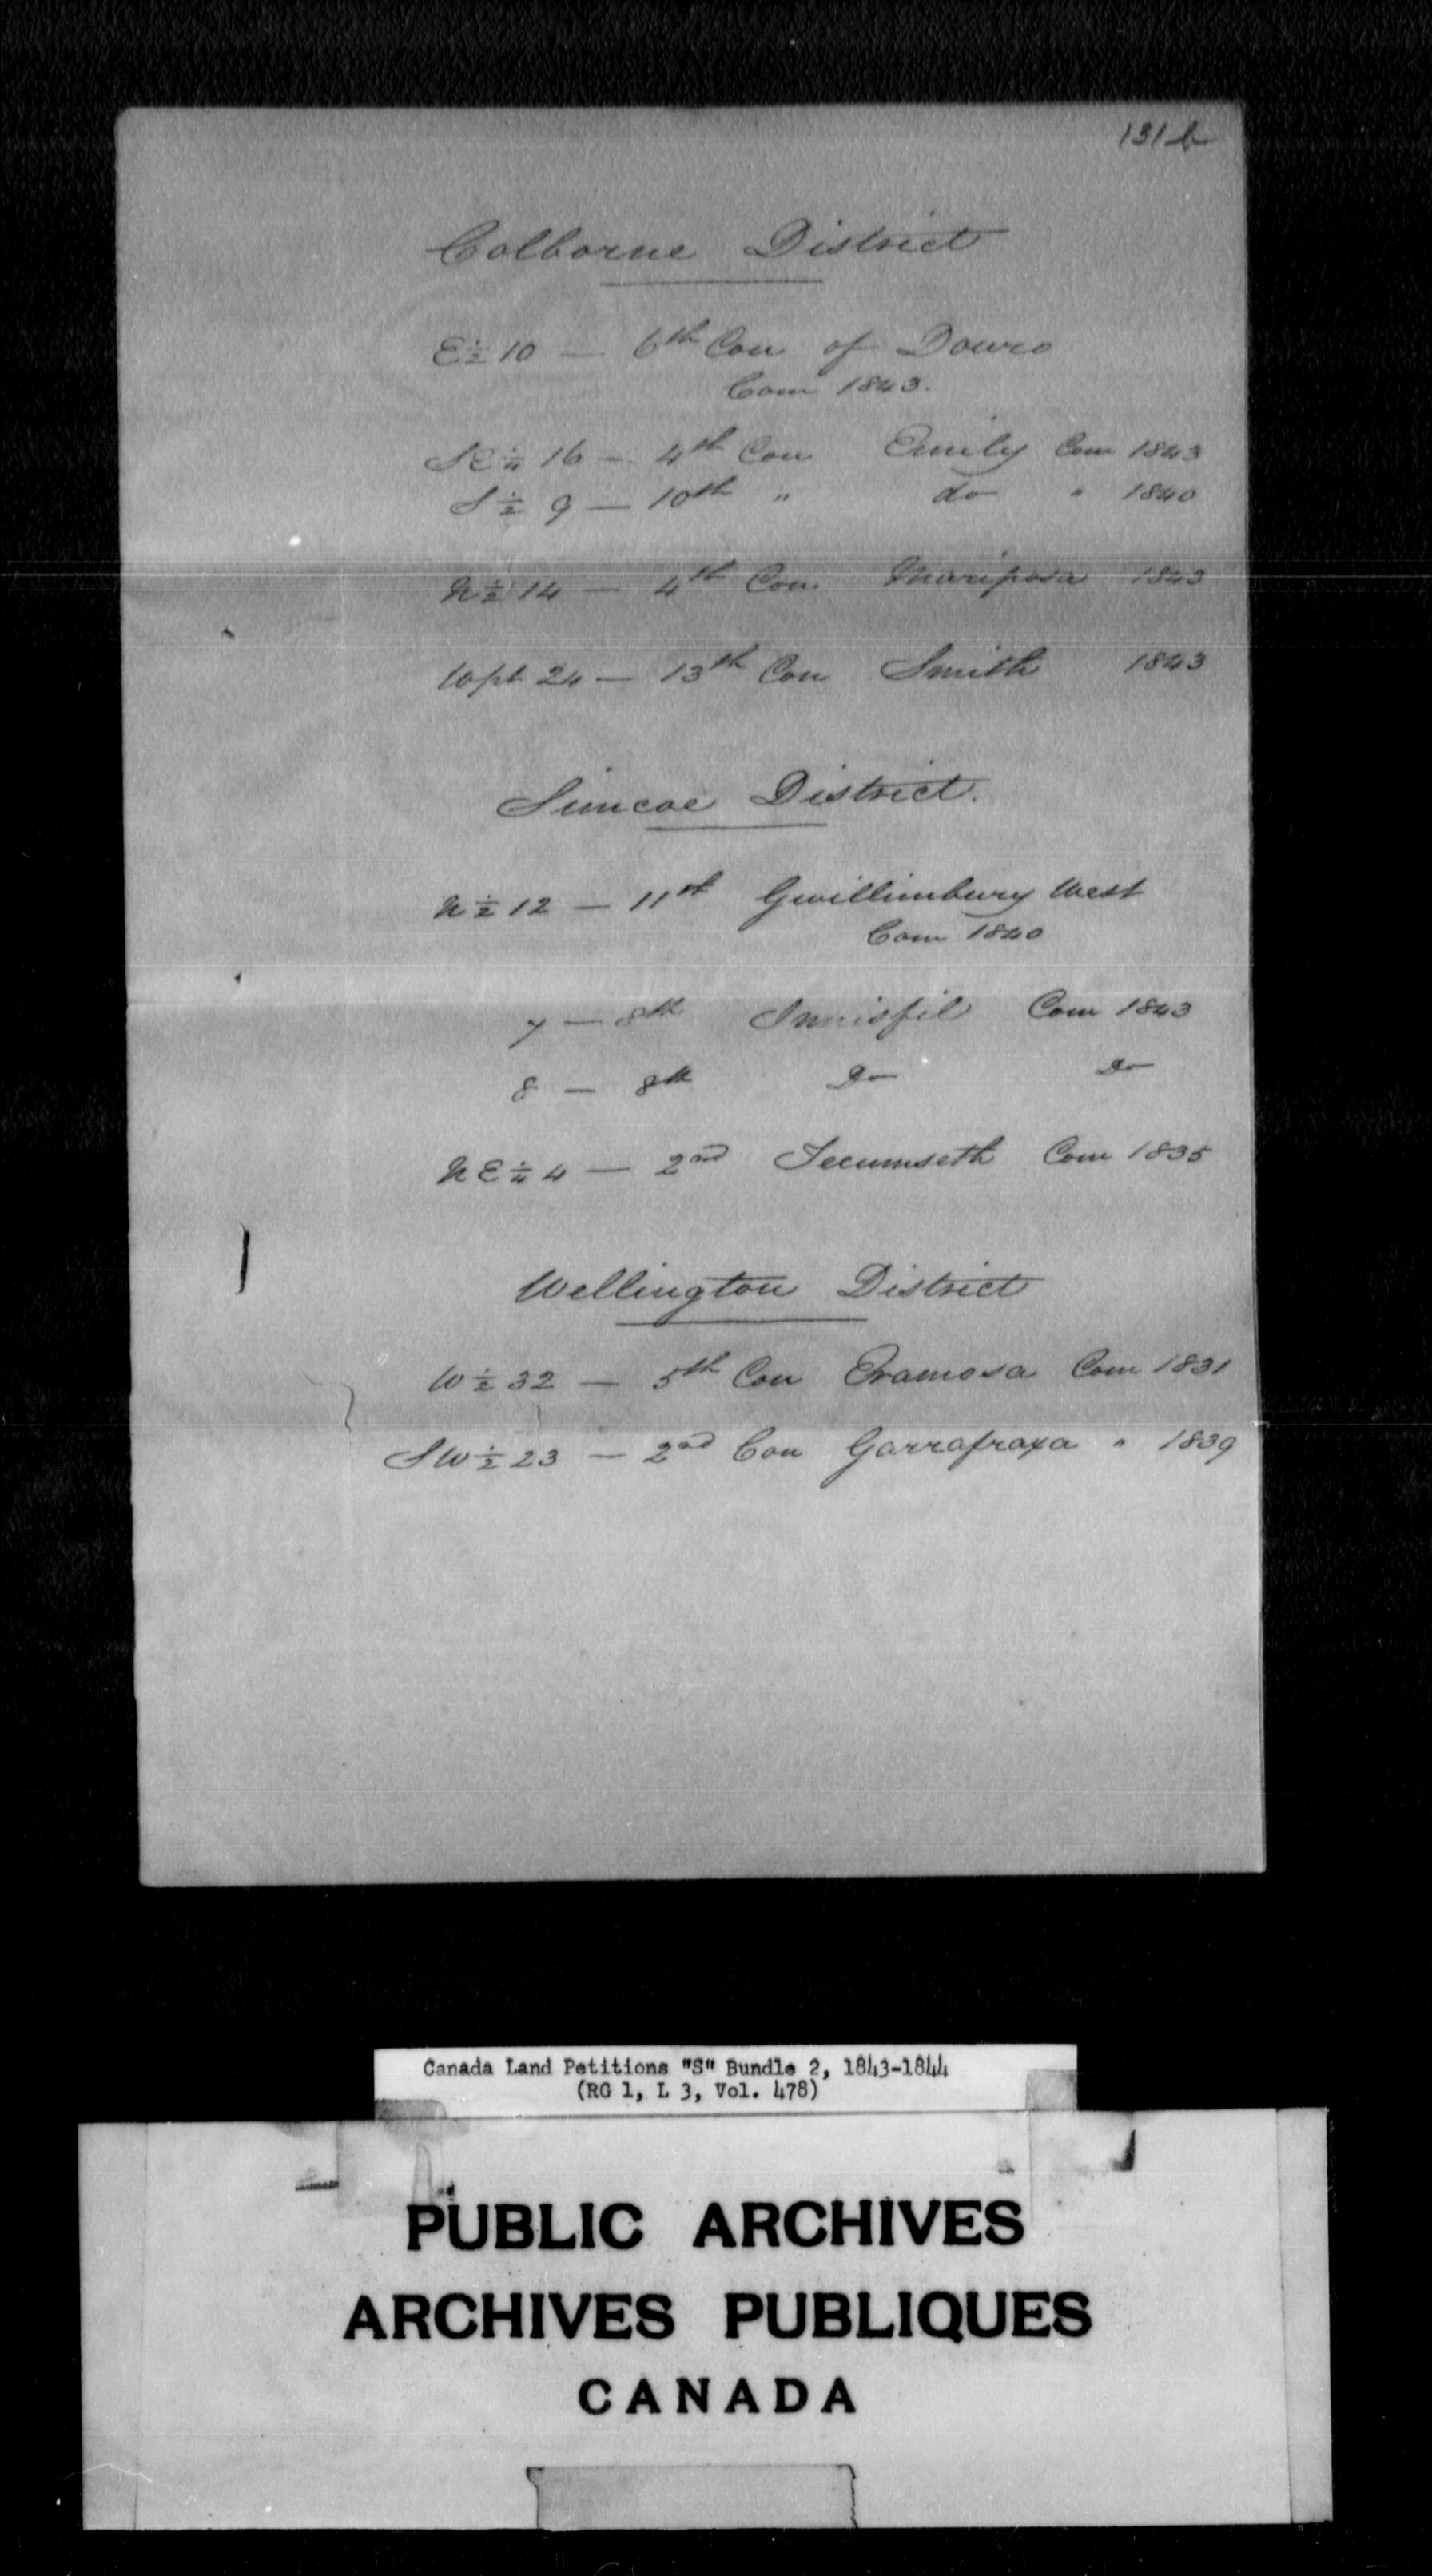 131 b
Colborne District
E ½ 10 — 6th Con of Douro
Com 1843.
SE ¼ 16 — 4th Con Emily Com 1843
S ½ 9 — 10th " do " 1840
N ½ 14 — 4th Con Mariposa 1843
W pt 24 — 13th Con Smith 1843
Simcoe District.
N ½ 12 — 11th Gwillimbury West
Com 1840
7 — 8th Innisfil Com 1843
8 — 8th Do Do
N E ¼ 4 — 2nd Tecumseth Com 1835
Wellington District
W ½ 32 — 5th Con Eramosa Com 1831
S W ½ 23 — 2nd Con Garrafraxa " 1839
Canada Land Petitions "S" Bundle 2, 1843-1844
(RG 1, L 3, Vol. 478)
PUBLIC ARCHIVES
ARCHIVES PUBLIQUES
CANADA